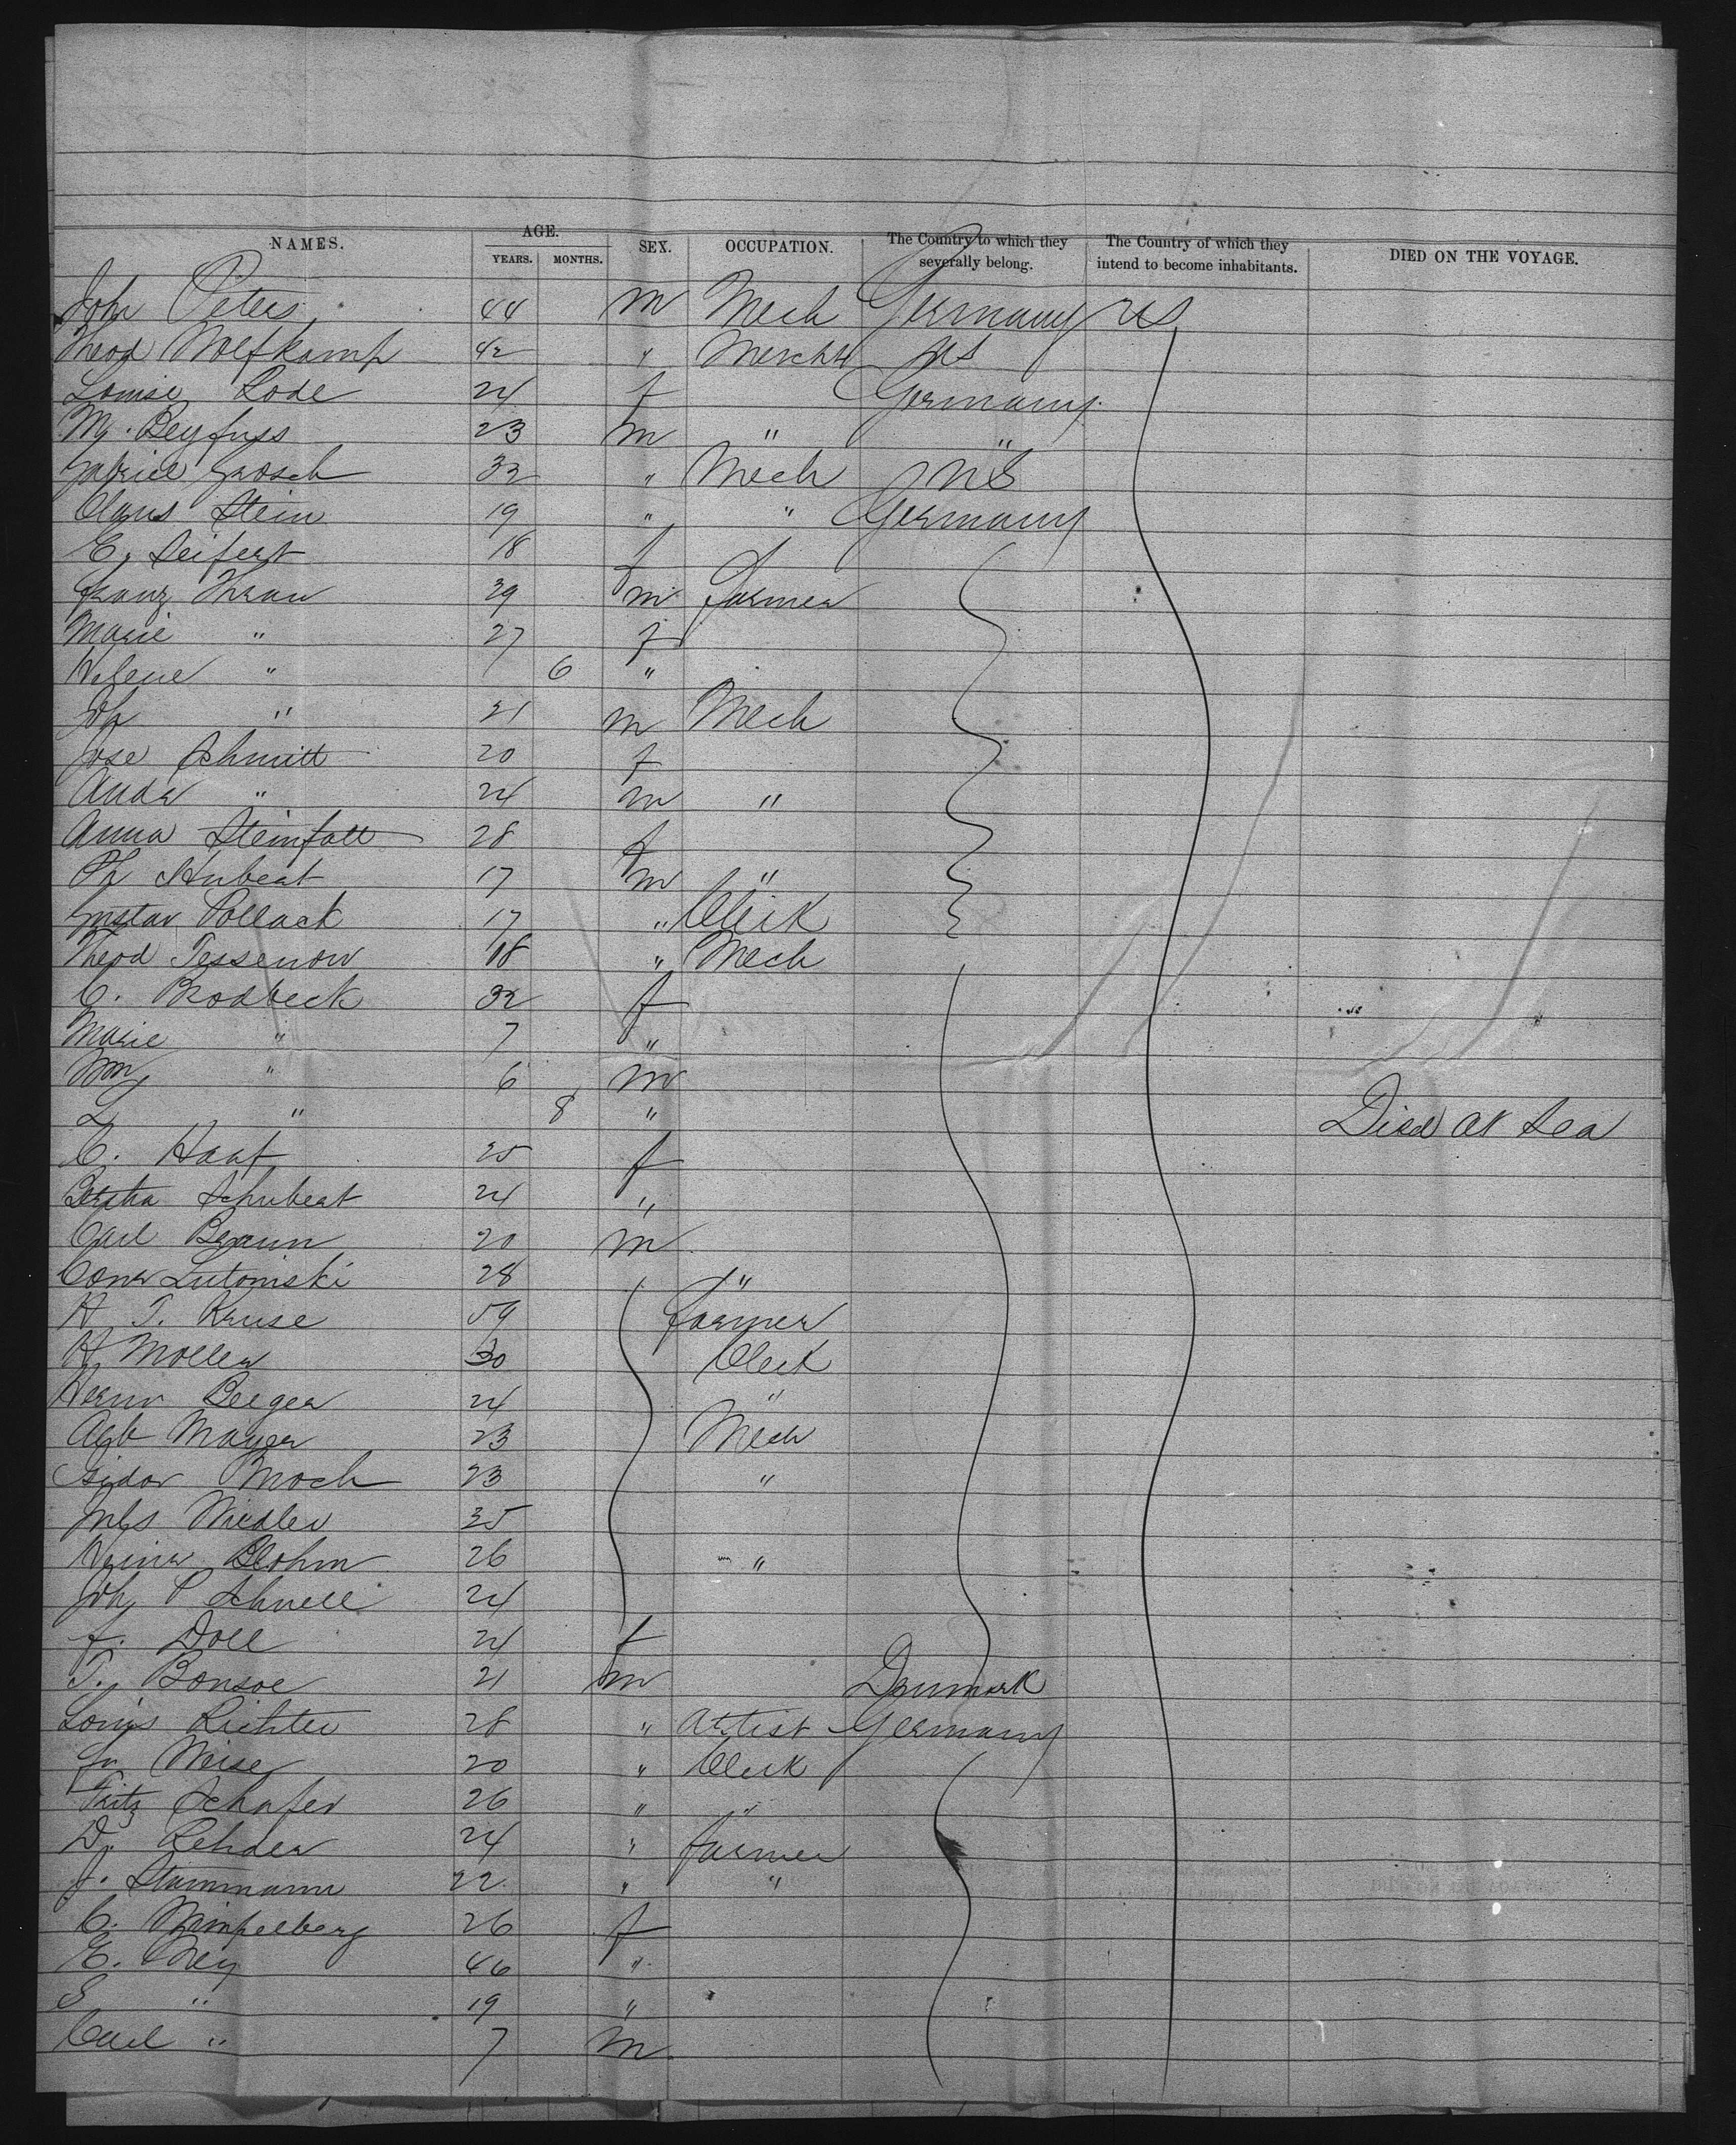 NAMES. AGE. YEARS. MONTHS. SEX. OCCUPATION. The Country to which they severally belong. The Country of which they intend to become inhabitants. DIED ON THE VOYAGE.
John Peters 44 m Mech Germany US
Theod Wolfkamp 42 " Mercht US
Louise Rode 24 f Germany
M. Beyfuss 23 m " "
Gabriel Grosch 32 " Mech US
Claus Stein 19 " " Germany
E. Seifert 18 f
Franz Thran 29 m Farmer
Marie " 27 f
Helene " 6 "
Joh " 21 m Mech
Jose Schmitt 20 f
Andr " 24 m "
Anna Steinfatt 28 f
Ph Hubert 17 m "
Gustav Pollack 17 " Clerk
Theod Tessenow 18 " Mech
C. Brodbeck 32 f
Marie " 7 "
Wm " 6 m
L " 8 " Died at Sea
C. Haaf 25 f
Bertha Schubert 24 "
Carl Braun 20 m
Lutomski 28 "
H T. Kruse 59 Farmer
H Moller 30 Clerk
Herm Berger 24 "
Agb Mayer 23 Mech
Isidor Bloch 23 "
Juls Wiedler 35
Heinr Blohm 26 "
Joh P Schnell 24
F. Doll 24 f
T. Bonsoe 21 m Denmark
Louis Richter 28 " Artist Germany
Fr Weise 20 " Clerk
Fritz Schafer 26 " "
D. Rehder 24 " Farmer
J. Stammann 22 " "
C. Wimpelberg 26 f
E. Ney 46 "
S " 19 "
Carl " 7 m